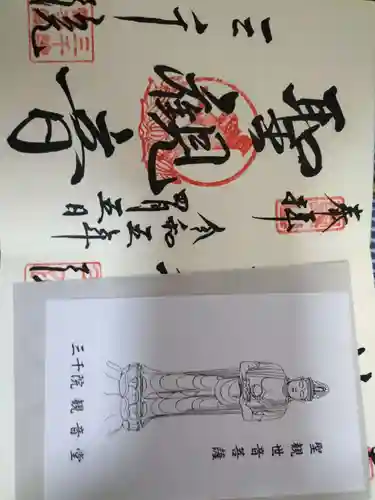 奉拝
令和五年
四月五日
聖観音
三千院
聖観世音菩薩
三千院 観音堂